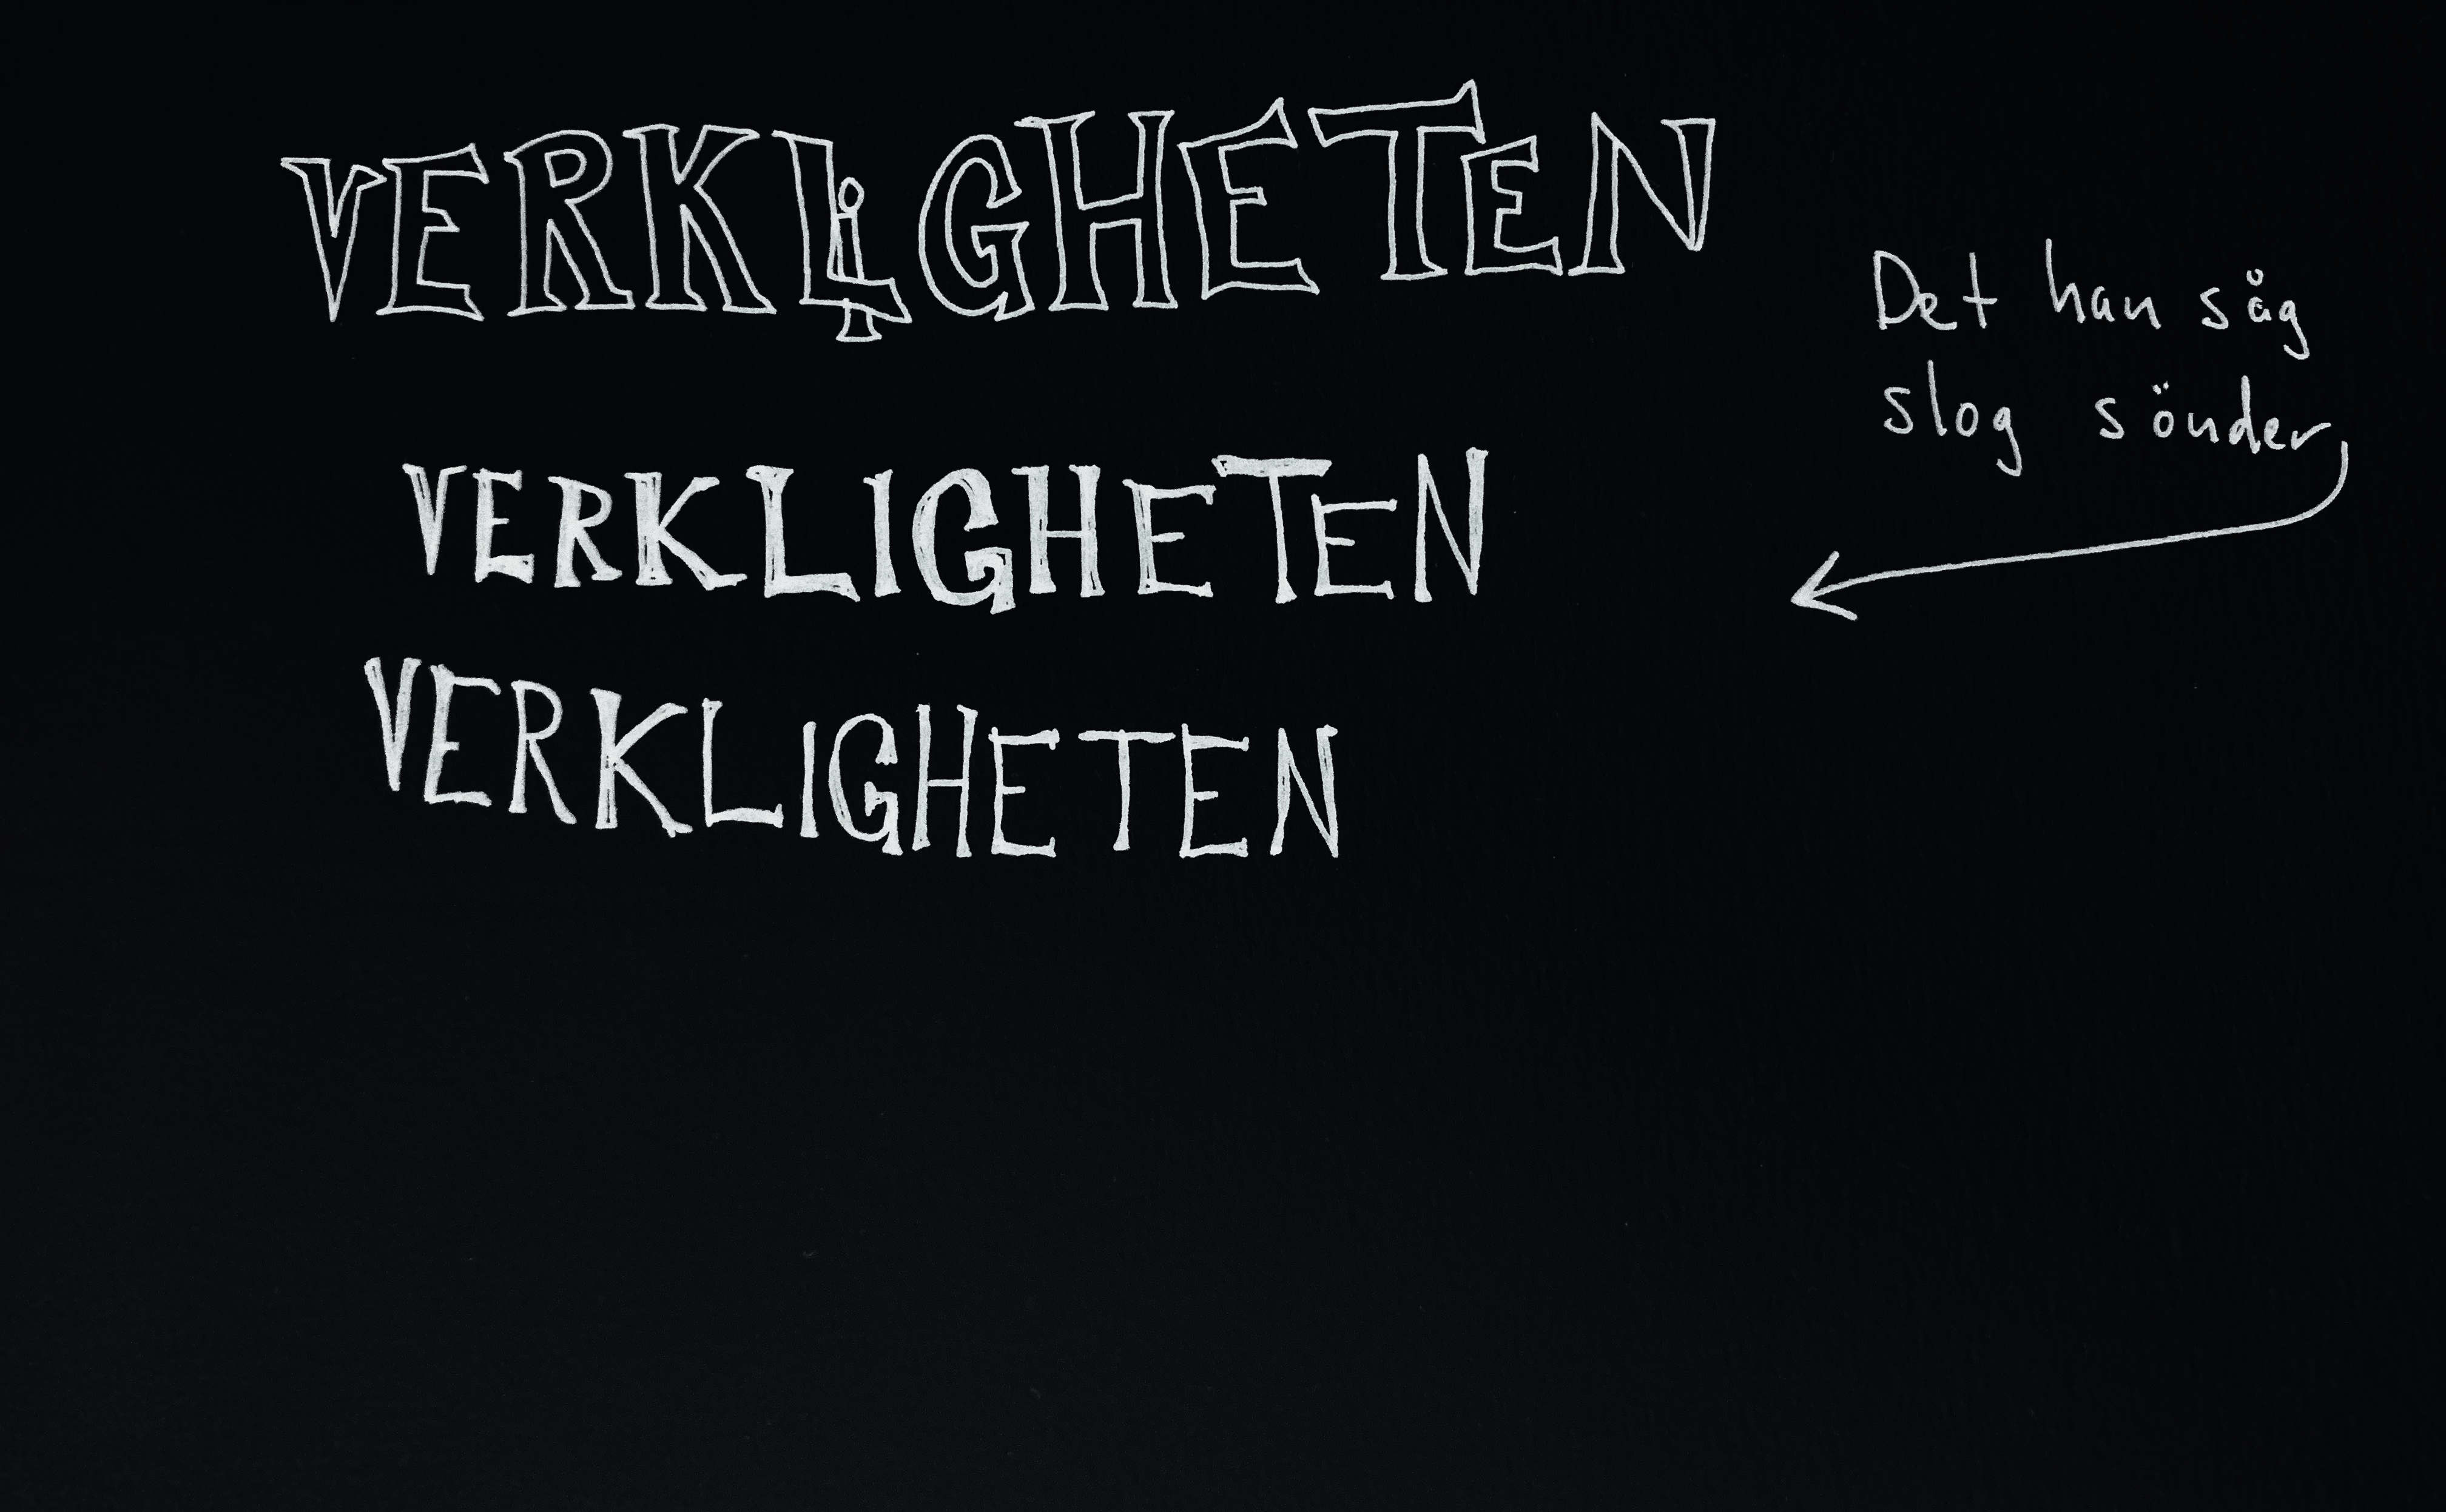 VERKLiGHETEN
Det han såg
slog sönder
VERKLIGHETEN
VERKLIGHETEN